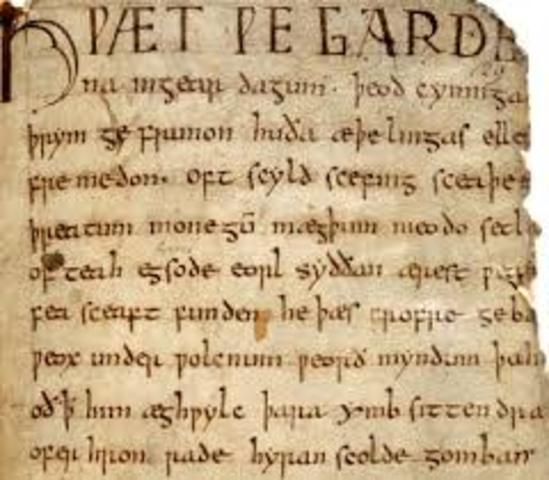 HǷÆT ǷE GARDE
na ingear dagum. þeod cyninga
þrym ge frunon huða æþelingas elle
fre medon. oft scyld scefing sceaþe
þreatum monegū mægþum meodo setla
of teah egsode eorl syððan ærest ƿær
fea sceaft funden he þæs frofre geba
ƿeox under ƿolcnum ƿeorð myndum þah
oð þ̄ him æghƿylc þara ymb sittendra
ofer hron rade hyran scolde gomban